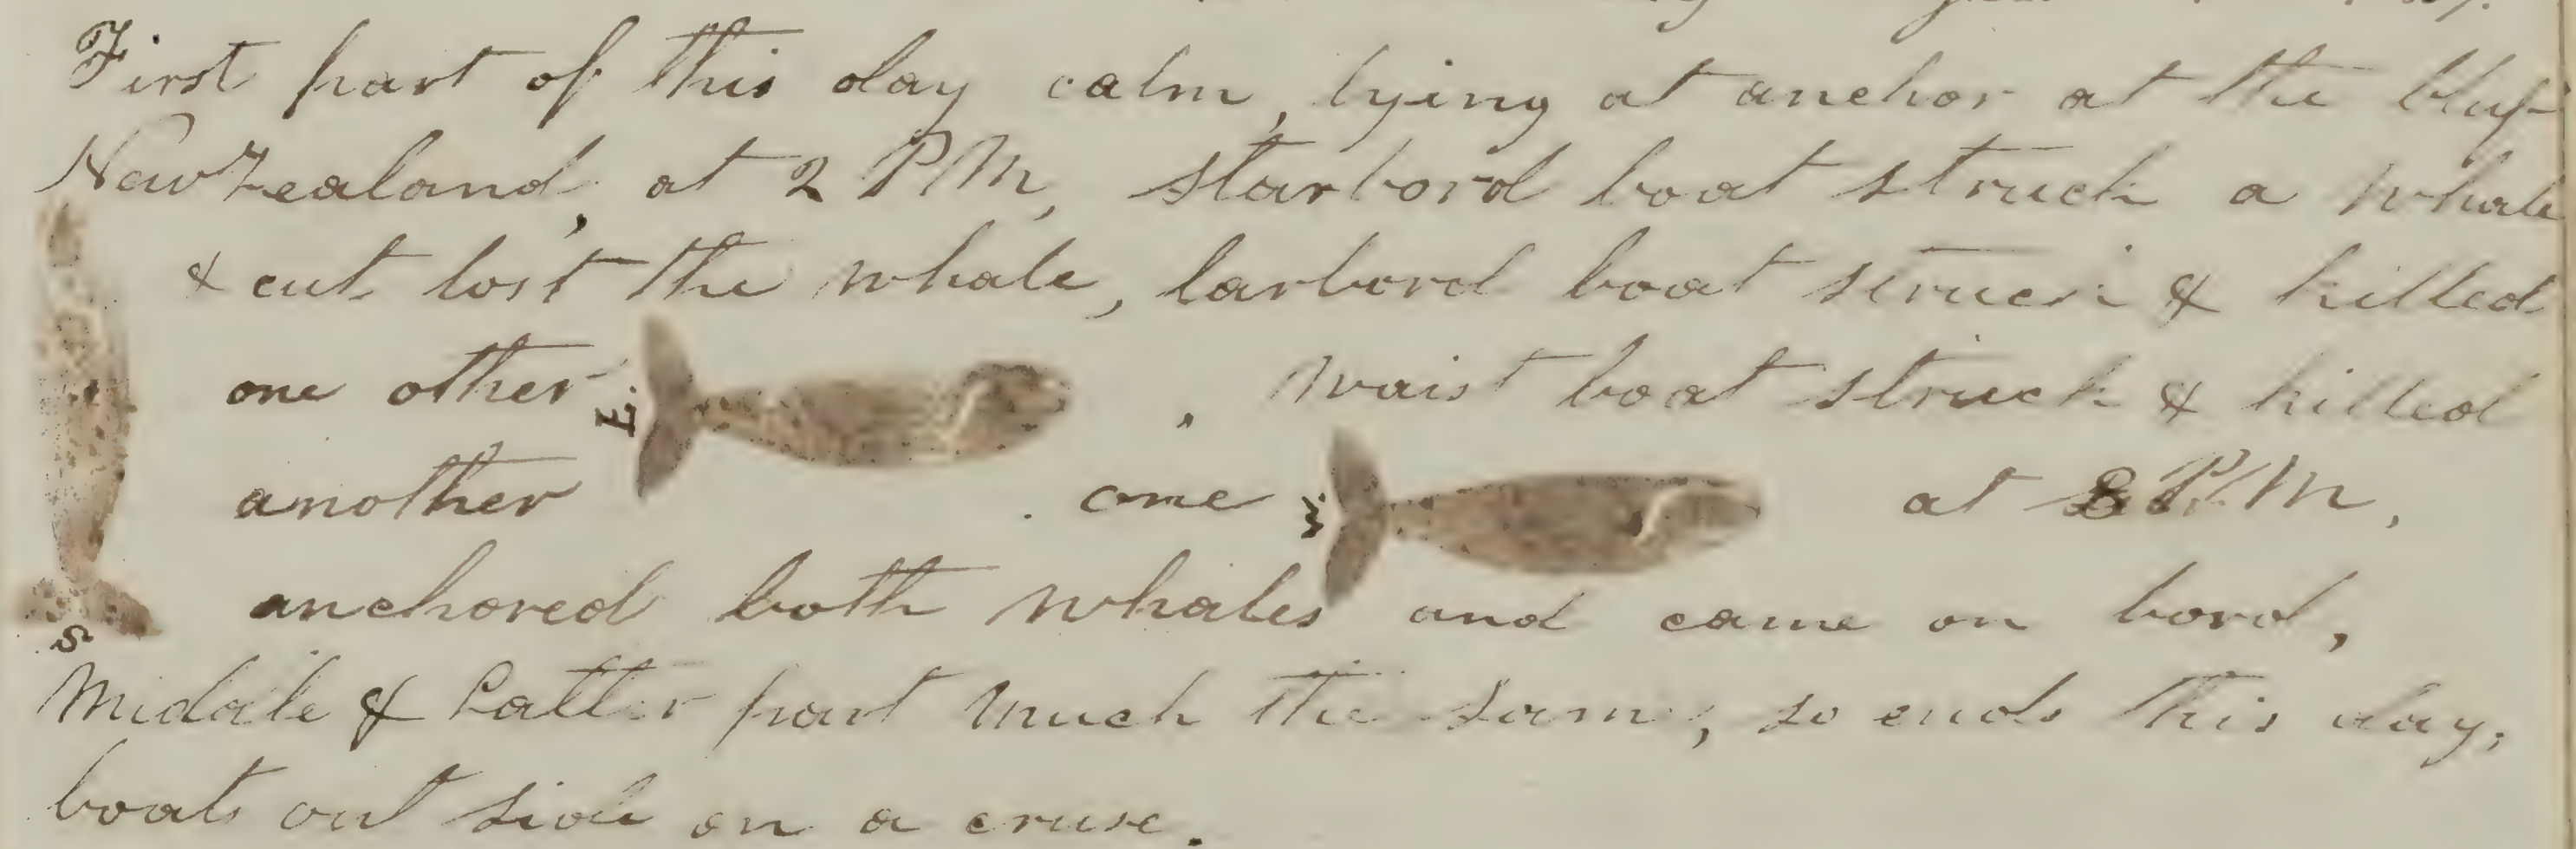 First part of this day calm, lying at anchor at the bluf
New Zealand, at 2 PM, starbord boat struck a whale
& cut lost the whale, larbord boat struck & killed
one other L. , waist boat struck & killed
another . one W. at 8 PM,
anchored both whales and came on bord,
S
Middle & Latter part much the same, so ends this day,
boats out side on a cruse.